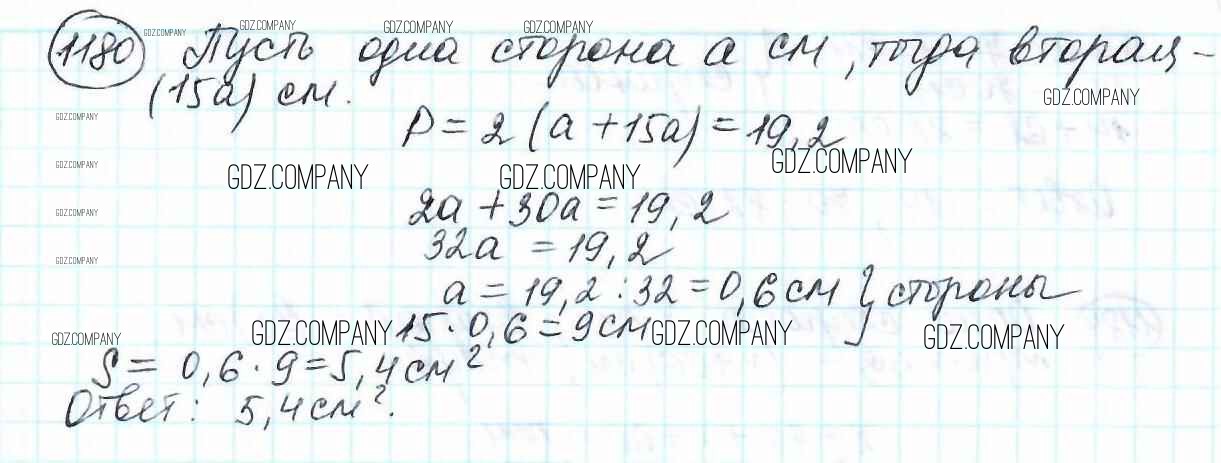 GDZ.COMPANY GDZ.COMPANY GDZ.COMPANY GDZ.COMPANY
1180 Пусть одна сторона a см, тогда вторая –
(15a) см.
GDZ.COMPANY
GDZ.COMPANY
P = 2 (a + 15a) = 19,2
GDZ.COMPANY
GDZ.COMPANY GDZ.COMPANY GDZ.COMPANY
2a + 30a = 19,2
GDZ.COMPANY
32a = 19,2
GDZ.COMPANY
a = 19,2 : 32 = 0,6 см } стороны
15 · 0,6 = 9 см
GDZ.COMPANY GDZ.COMPANY GDZ.COMPANY GDZ.COMPANY
S = 0,6 · 9 = 5,4 см²
Ответ: 5,4 см².